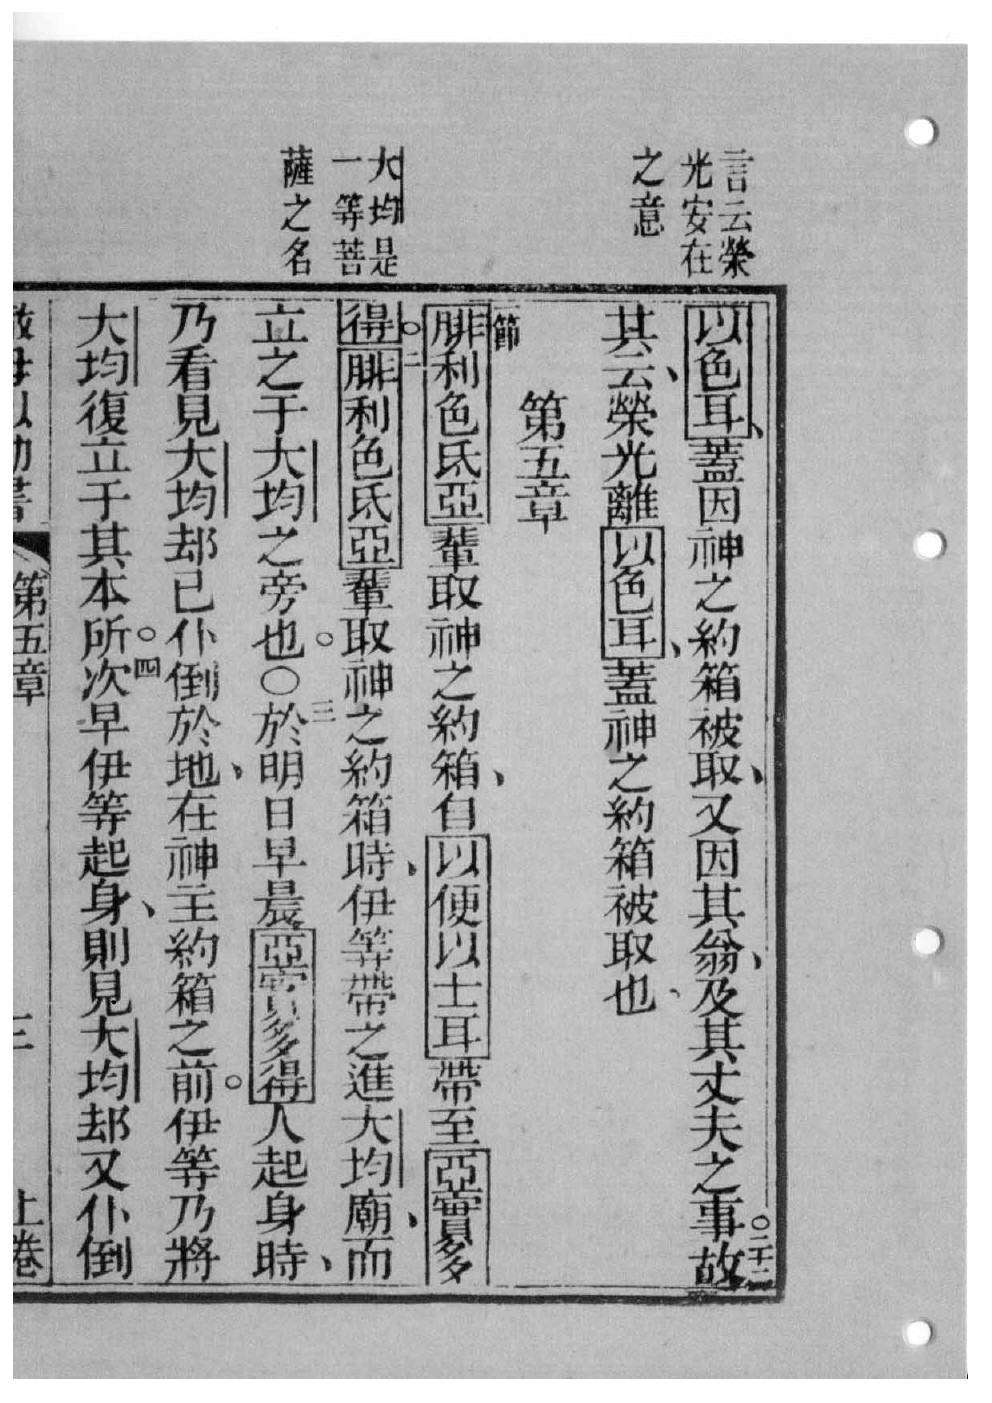 言云榮
光安在
之意
大均是
一等菩
薩之名
以色耳、蓋因神之約箱被取、又因其翁、及其丈夫之事故○二十二
其云、榮光離以色耳、蓋神之約箱被取也
第五章
節
腓利色氏亞輩取神之約箱、自以便以士耳帶至亞實多
得○二腓利色氏亞輩取神之約箱時、伊等帶之進大均廟、而
立之于大均之旁也○三於明日早晨亞實多得人起身時、
乃看見大均却已仆倒於地、在神主約箱之前○伊等乃將
大均復立于其本所○四次早伊等起身、則見大均却又仆倒
第五章
三
上卷